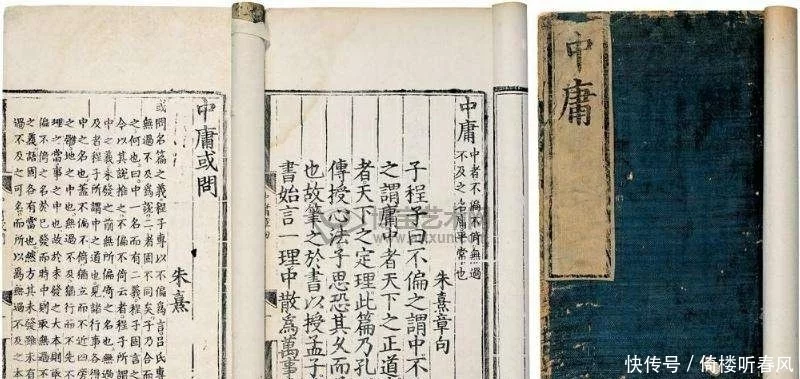 中庸
中庸 中者不偏不倚無過
不及之名庸平常也
朱熹章句
子程子曰不偏之謂中不
之謂庸中者天下之正道
者天下之定理此篇乃孔
傳授心法子思恐其久而
也故筆之於書以授孟子
書始言一理中散爲萬事
中庸或問
朱熹
或問名篇之義程子專以不偏爲言呂氏專
無過不及爲說二者固不同矣子乃合而
之何也曰中一名而有二義程子固言之
今以其說推之不偏不倚云者程子所謂
中之義未發之前無所偏倚之名也無過
及者程子所謂中之道也見諸行事各得
中之名也蓋不偏不倚猶立而不近四旁
之體地之中也無過不及猶行而不先不
理之當事之中也故於未發之大本則
偏不倚之名於已發而時中則取無過
之義語固各有當也然方其未發雖未有
過不及之可名而所以爲無過不及之本
快传号／倚楼听春风